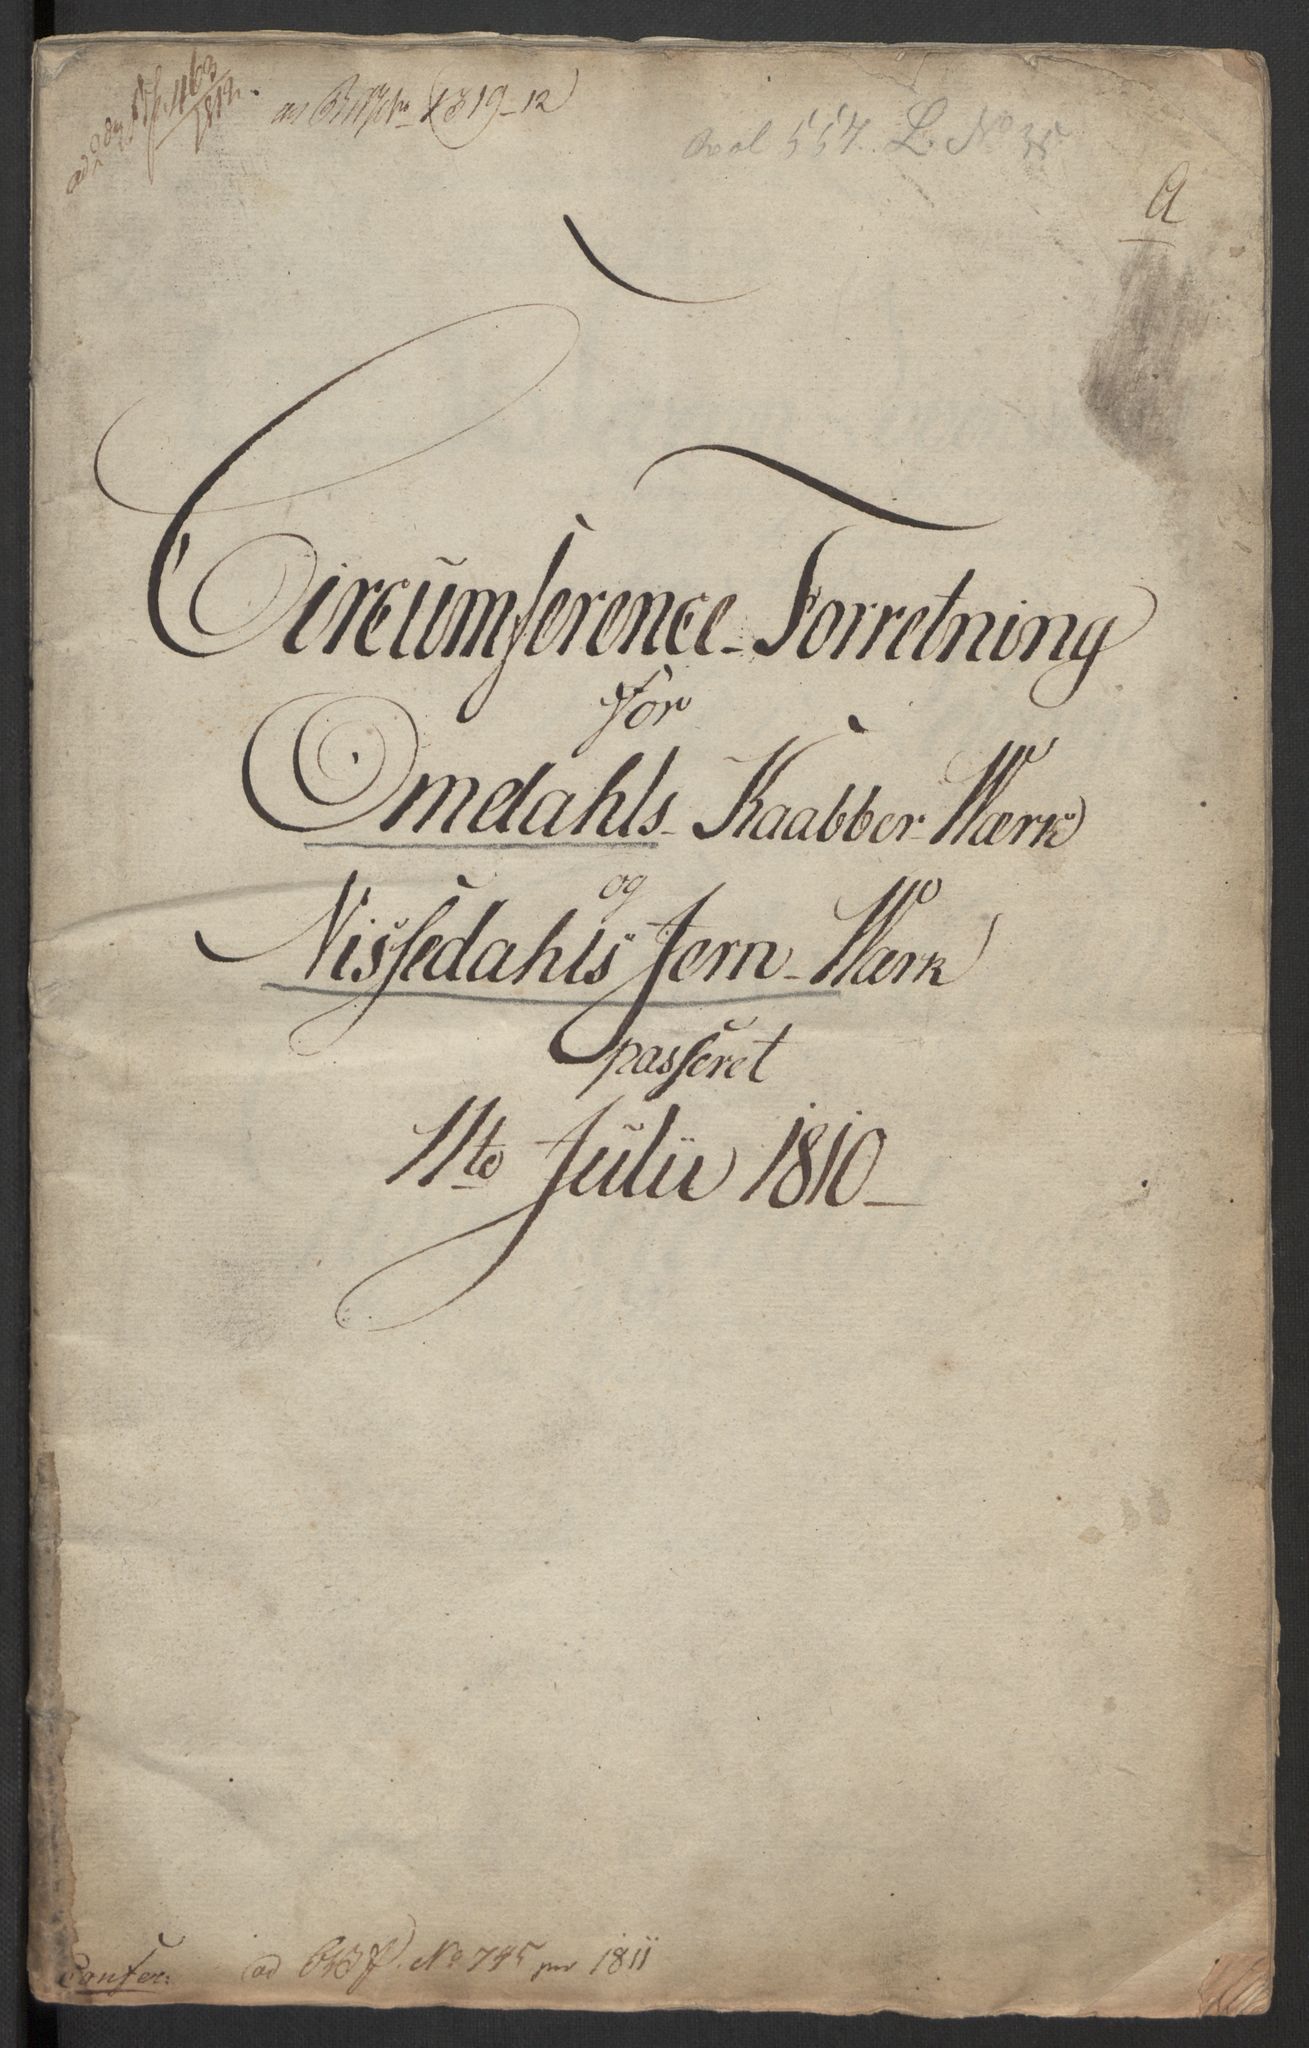 463
1812
1819-12
557. L. No
A
Circumference-Forretning
for
Omdahls-Kaabber-Wærk
og
Nissedahls Jern-Wærk
passeret
11te Julii 1810
Confer: ad No 745 pro 1811